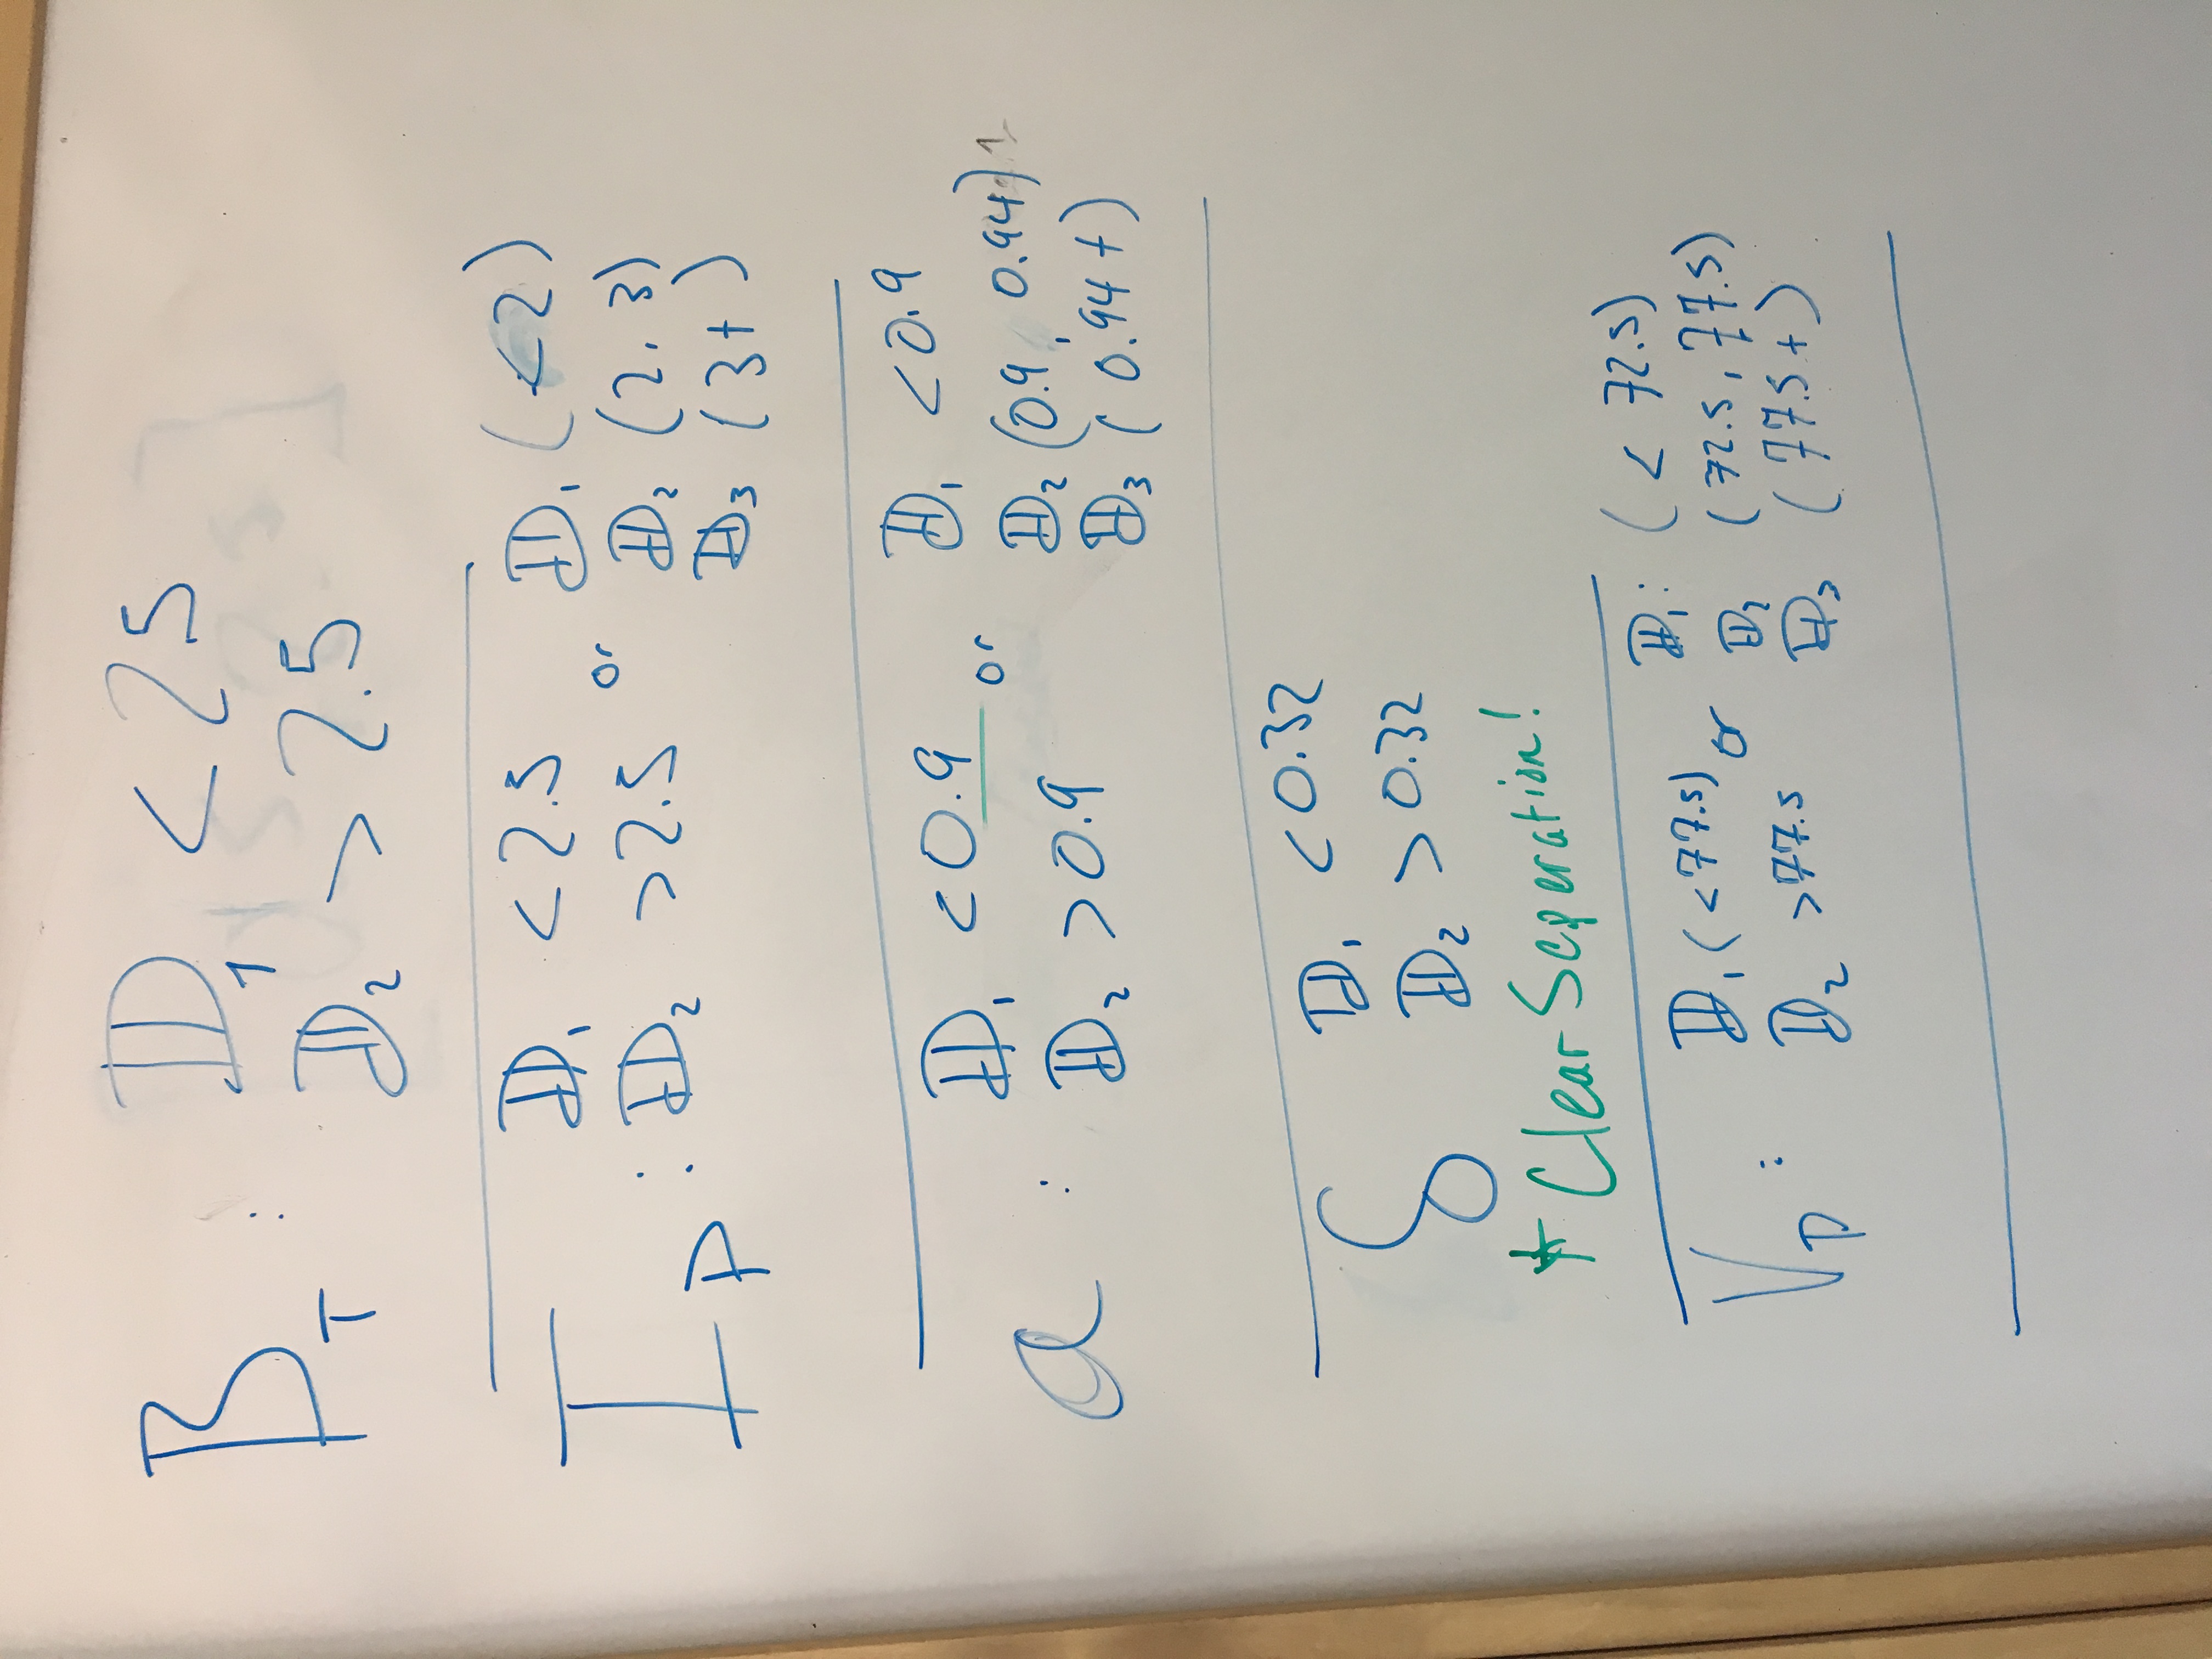 B_T : 𝔻₁ < 2.5
𝔻₂ > 2.5
I_P : 𝔻₁ < 2.5 or 𝔻₁ (<2)
𝔻₂ > 2.5 𝔻₂ (2, 3)
𝔻₃ (3+)
a : 𝔻₁ < 0.9 or 𝔻₁ < 0.9
𝔻₂ > 0.9 𝔻₂ (0.9, 0.94)
𝔻₃ (0.94+)
δ 𝔻₁ < 0.32
𝔻₂ > 0.32
* Clear Seperation!
V_P : 𝔻₁ (<77.5) or 𝔻₁: (< 72.5)
𝔻₂ >77.5 𝔻₂ (72.5, 77.5)
𝔻₃ (77.5+)